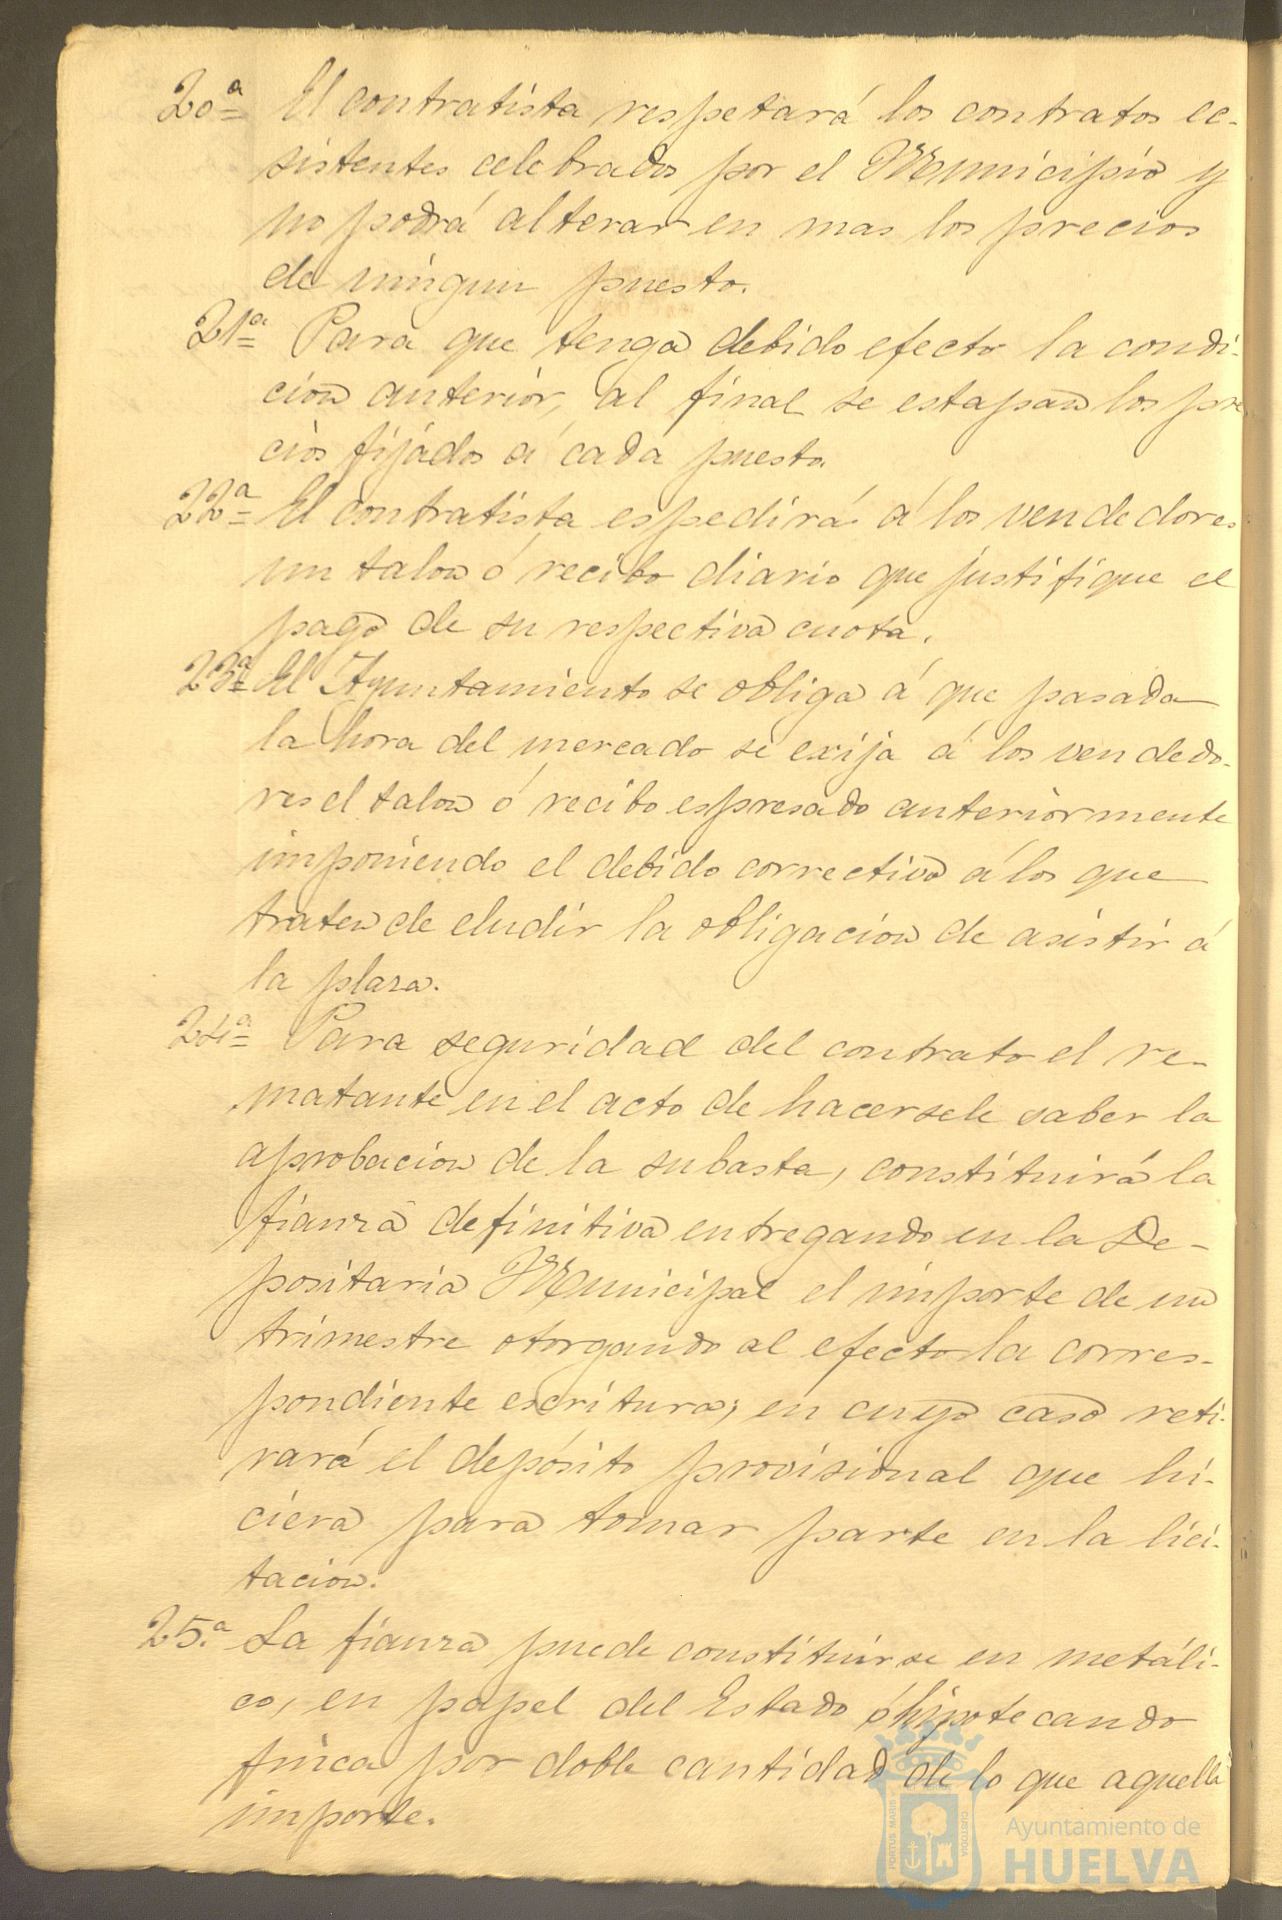 20ª El contratista respetará los contratos ec-
sistentes celebrados por el Municipio y
no podrá alterar en mas los precios
de ningun puesto.
21ª Para que tenga debido efecto la condi-
cion anterior, al final se estapan los pre
cios fijados á cada puesto.
22ª El contratista espedirá á los vendedores
un talon ó recibo diario que justifique el
pago de su respectiva cuota.
23ª El Ayuntamiento se obliga á que pasada
la hora del mercado se exija á los vendedo-
res el talon ó recibo espresado anteriormente
imponiendo el debido correctivo á los que
traten de eludir la obligacion de asistir á
la plaza.
24ª Para seguridad del contrato el re-
matante en el acto de hacersele saber la
aprobacion de la subasta, constituirá la
fianza definitiva entregando en la De-
positaria Municipal el importe de un
trimestre otorgando al efecto la corres-
pondiente escritura; en cuyo caso reti-
rará el depósito provisional que hi-
ciera para tomar parte en la lici-
tacion.
25.ª La fianza puede constituirse en metáli-
co, en papel del Estado ó hipotecando
finca por doble cantidad de lo que aquella
importe.
PORTUS MARIS CUSTODIA
Ayuntamiento de
HUELVA